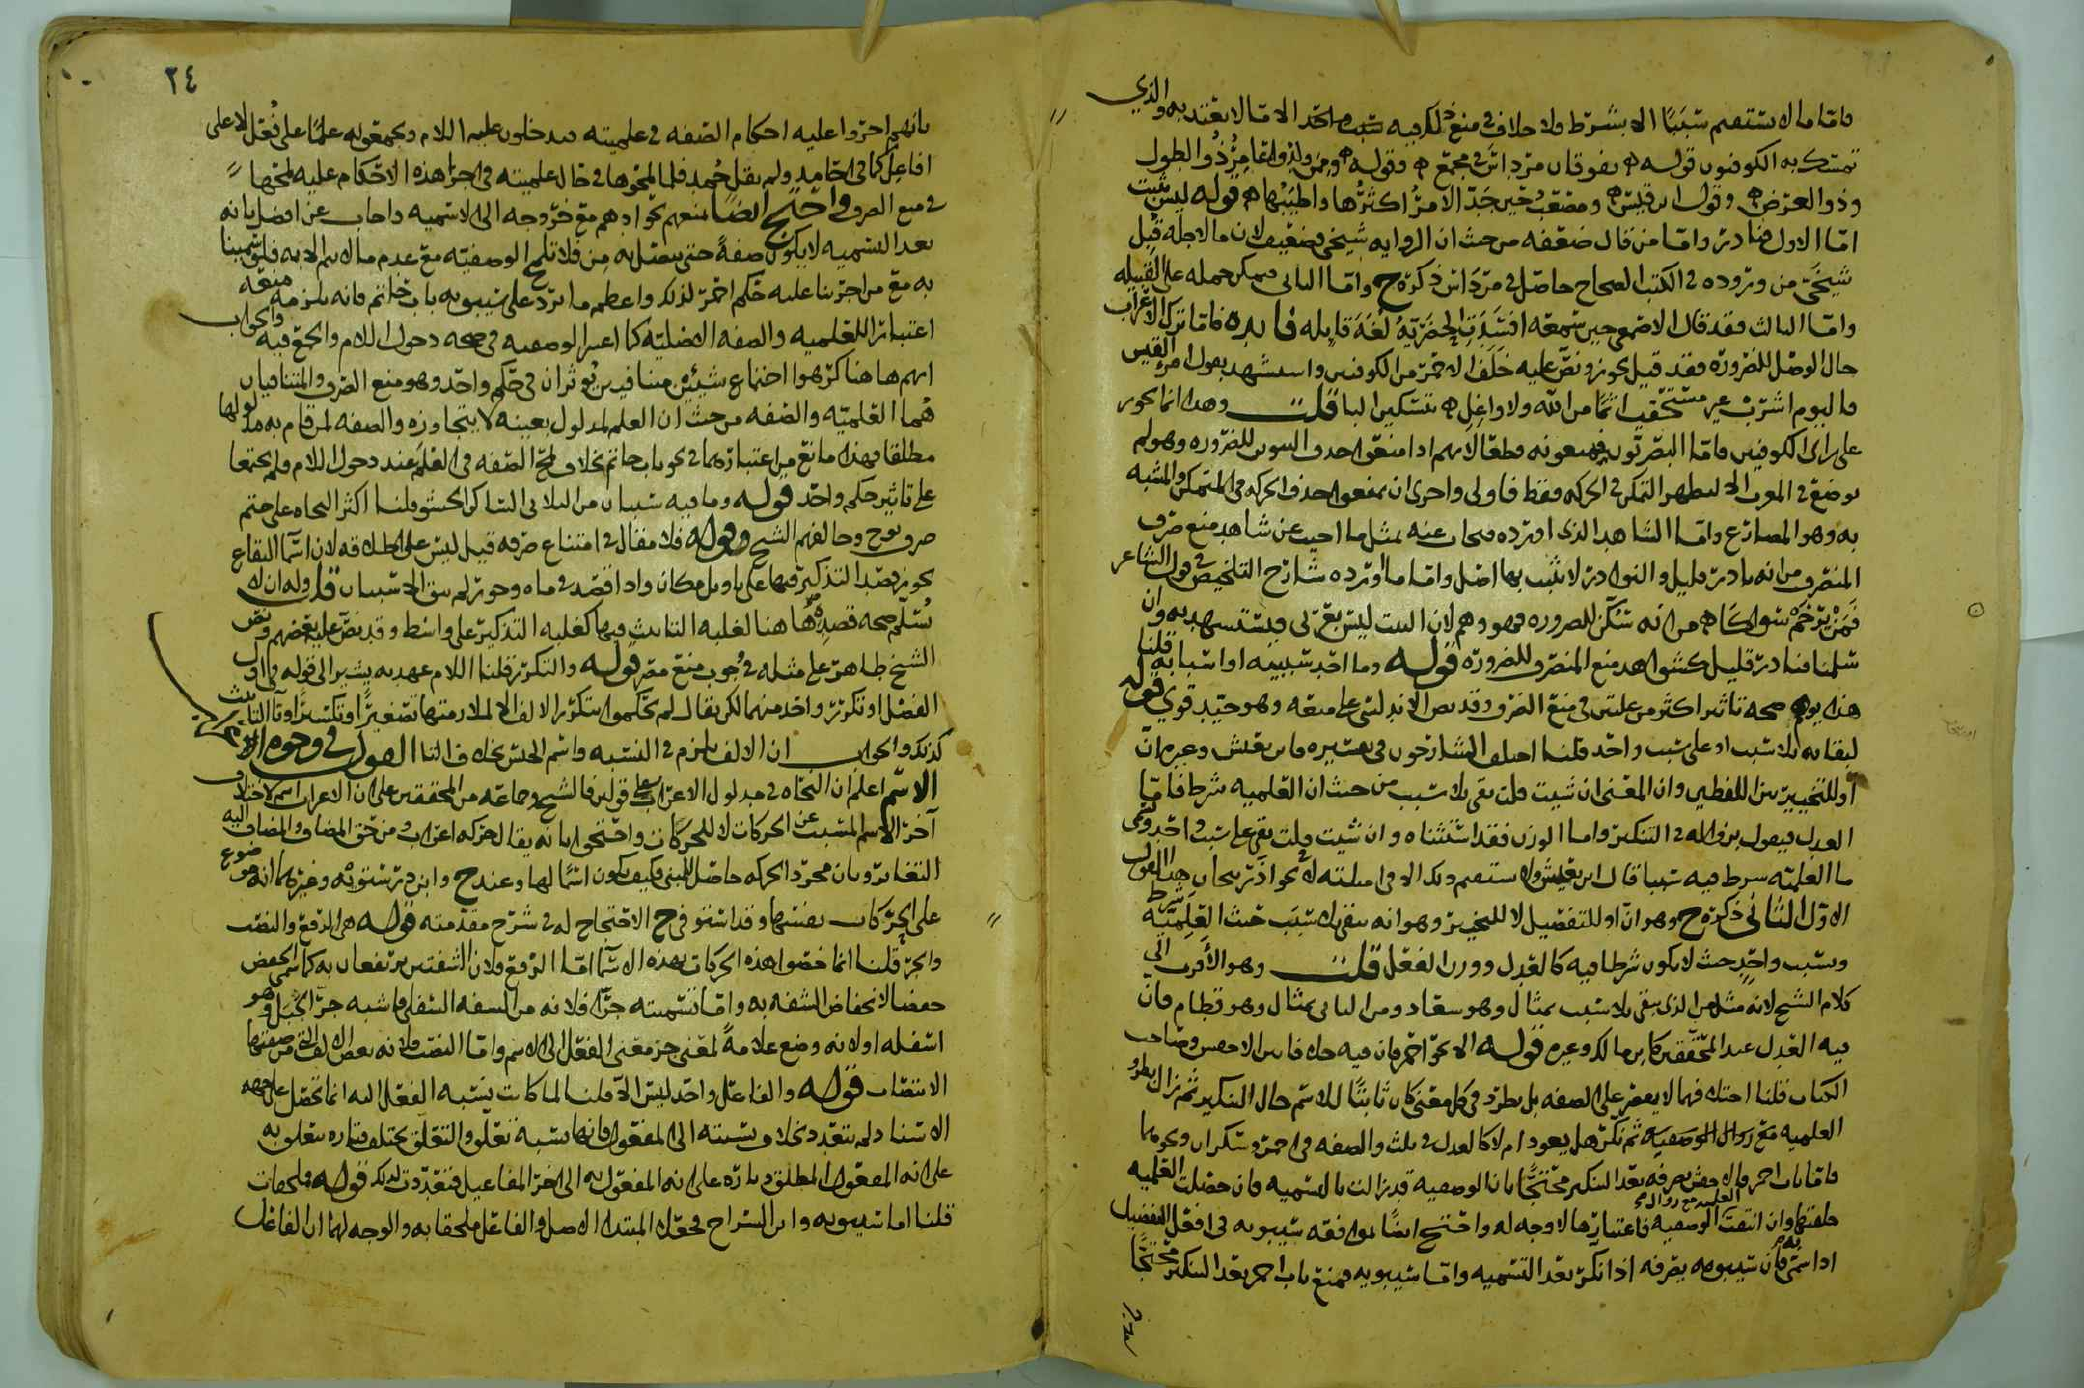 فاما ما لا يستقيم سببا الا بشرط ولا خلاف في منع ما فيه سبب واحد الا ما لا يعتد به والذي
تمسك به الكوفيون قوله يفوقان مرداس في مجمع وقوله وممن ولدوا عامر ذو الطول
وذو العرض وقول ابن قيس ومصعب حين جد الامر اكثرها واطيبها قوله ليس بثبت
اما الاول فنادر واما من قال ضعفه من حيث ان الرواية شيخي فضعيف لان ما لاجله قيل
شيخي من وروده في الكتب الصحاح حاصل في مرداس ذكره ح واما الثاني فيمكن حمله على القبيلة
واما الثالث فقد قال الاصمعي حين سمعه
حال الوصل للضرورة فقد قيل يجوز ونص عليه خلف الاحمر من الكوفيين واستشهد بقول امرئ القيس
فاليوم اشرب غير مستحقب اثما من الله ولا واغل بتسكين الباء قلت وهذا انما يجوز
على راى الكوفيين فاما البصريون فيمنعونه قطعا لانهم اذا منعوا حذف التنوين للضرورة وهو لم
يوضع في المعرب الا ليظهر التمكن في الحركة فقط فاولى واحرى ان يمنعوا حذف الحركة في المتمكن والمشبه
به وهو المضارع واما الشاهد الذي اورده فيجاب عنه بمثل ما اجيب عن شاهد منع صرف
المنصرف من انه نادر قليل والنوادر لا يثبت بها اصل واما ما اورده شارح التلخيص في قول الشاعر
من انه سكن للضرورة فهو وهم لان البيت ليس بعربي فيستشهد به وان
سلمنا فنادر قليل كشواهد منع المنصرف للضرورة قوله وما احد سببيه او اسبابه قلنا
هذا يوهم صحة تاثير اكثر من علتين في منع الصرف وقد نص الاندلسي على منعه وهو جيد قوي قوله
لبقائه بلا سبب او على سبب واحد قلنا اختلف الشارحون في تفسيره فابن يعيش وغيره ان
او للتخيير بين اللفظين وان المعنى ان شئت قلت بقي بلا سبب من حيث ان العلمية شرط فاما
العدل فيقول بزواله في التنكير واما الوزن فقد استثناه وان شئت قلت بقي على سبب واحد وهي
ما العلمية شرط فيه سببا قال ابن يعيش ولا يستقيم ذلك الا في امثلته لا في نحو اذربيجان هذا القول
الاول الثاني ذكره ح وهو ان او للتفصيل لا للتخيير وهو انه يبقى بلا سبب حيث العلمية شرط
وسبب واحد حيث لا يكون شرطا فيه كالعدل ووزن الفعل قلت وهو الاقرب الى
كلام الشيخ لانه مثل من الذي يبقى بلا سبب بمثال وهو سعاد ومن الثاني بمثال وهو قطام فان
فيه العدل عند المحققين كابن مالك وغيره قوله الا نحو احمر فان فيه خلافا بين الاخفش وصاحب
الكتاب قلنا اختلافهما لا يقتصر على الصفة بل يطرد في كل معنى كان ثابتا للاسم حال التنكير ثم زال بطرو
العلمية مع زوال الوصفية ثم نكر هل يعود ام لا كالعدل في ثلث والصفة في احمر وسكران ونحوهما
فاما باب احمر فالاخفش يصرفه بعد التنكير محتجا بان الوصفية قد زالت بالتسمية فان حصلت العلمية
خلفتها وان انتفت العلمية مع زوال الوصفية فاعتبارها لا وجه له واحتج ايضا بموافقة سيبويه في افعل التفضيل
اذا سمي به فان سيبويه يصرفه اذا نكر بعد التسمية واما سيبويه فمنع باب احمر بعد التنكير محتجا
٢٤
بانهم اجروا عليه احكام الصفة في علميته فيدخلون عليه اللام ويجمعونه علما على فعل لا على
افاعل كما في احامد ولم يقل حمد فلما لمحوها في حال علميته في اجرا هذه الاحكام عليه لمحها
في منع الصرف واحتج ايضا بمنعهم نحو ادهم مع خروجه الى الاسمية واجاب عن افضل بانه
بعد التسمية لا يكون صفة حتى يتصل به من فلا تلمح الوصفية مع عدم ما لا يتم الا به فلو سمينا
به مع من اجرينا عليه حكم احمر لذلك واعظم ما يرد على سيبويه باب حاتم فانه يلزمه منعه
اعتبارا للعلمية والصفة الاصلية كما اعتبر الوصفية في صحة دخول اللام والجمع فيه والجواب
انهم هاهنا كرهوا اجتماع شيئين متنافيين يؤثران في حكم واحد وهو منع الصرف والمتنافيان
هما العلمية والصفة من حيث ان العلم لمدلول بعينه لا يتجاوزه والصفة لمن قام به مدلولها
مطلقا فهذا مانع من اعتبارهما في نحو باب حاتم بخلاف لمح الصفة في العلم عند دخول اللام فلم يجتمعا
على تاثير حكم واحد قوله وما فيه سببان من الثلاثي الساكن الحشو قلنا اكثر النحاة على حتم
صرف نوح وخالفهم الشيخ وقوله فلا مقال في امتناع صرفه قيل ليس على اطلاقه لان اسماء البقاع
يجوز قصد التذكير فيها على تاويل مكان واذا قصد في ماه وجور لم يبق الا سببان قلت وله ان لا
يسلم صحة قصده هاهنا لغلبة التانيث فيها كغلبة التذكير على واسط وقد نص عليه بعضهم ونص
الشيخ ظاهر على مثله في وجوب منع مصر قوله والتكرر قلنا اللام عهدية يشير الى قوله في اول
الفصل او تكرر واحد منهما لكن يقال لم تحكموا بتكرر الالف الا لملازمتها تصغيرا وتكسيرا وتاء التانيث
كذلك والجواب ان الالف يلزم في النسبة واسم الجنس بخلاف التاء القول في وجوه اعراب
الاسم اعلم ان النحاة في مدلول الاعراب على قولين فالشيخ وجماعة من المحققين على ان الاعراب اسم لاختلاف
آخر الاسم المسبب عن الحركات لا للحركات واحتجوا بانه يقال حركة اعراب ومن حق المضاف والمضاف اليه
التغاير وبان مجرد الحركة حاصل للمبني فكيف يكون اسما لها وعند ح وابن درستويه وغيرهما انه موضوع
على الحركات نفسها وقد استوفى ح الاحتجاج له في شرح مقدمته قوله هي الرفع والنصب
والجر قلنا انما خصوا هذه الحركات بهذه الاسماء اما الرفع فلان الشفتين يرتفعان به كما سمي الخفض
خفضا لانخفاض الشفة به واما تسميته جرا فلانه من الشفة السفلى فاشبه جر الجبل وهو
اسفله او لانه وضع علامة لمعنى جر معنى الفعل الى الاسم واما النصب فلانه بعض الالف التي من صفتها
الانتصاب قوله والفاعل واحد ليس الا قلنا لما كانت نسبة الفعل اليه انما تحصل على جهة
الاسناد لم يتعدد بخلاف نسبته الى المفعول فانها نسبة تعلق والتعلق يختلف فتارة يتعلق به
على انه المفعول المطلق وتارة على انه المفعول به الى آخر المفاعيل فتعددت لذلك قوله وملحقات
قلنا اما سيبويه وابن السراج فجعلا المبتدا الاصل والفاعل ملحقا به والوجه لهما ان الفاعل